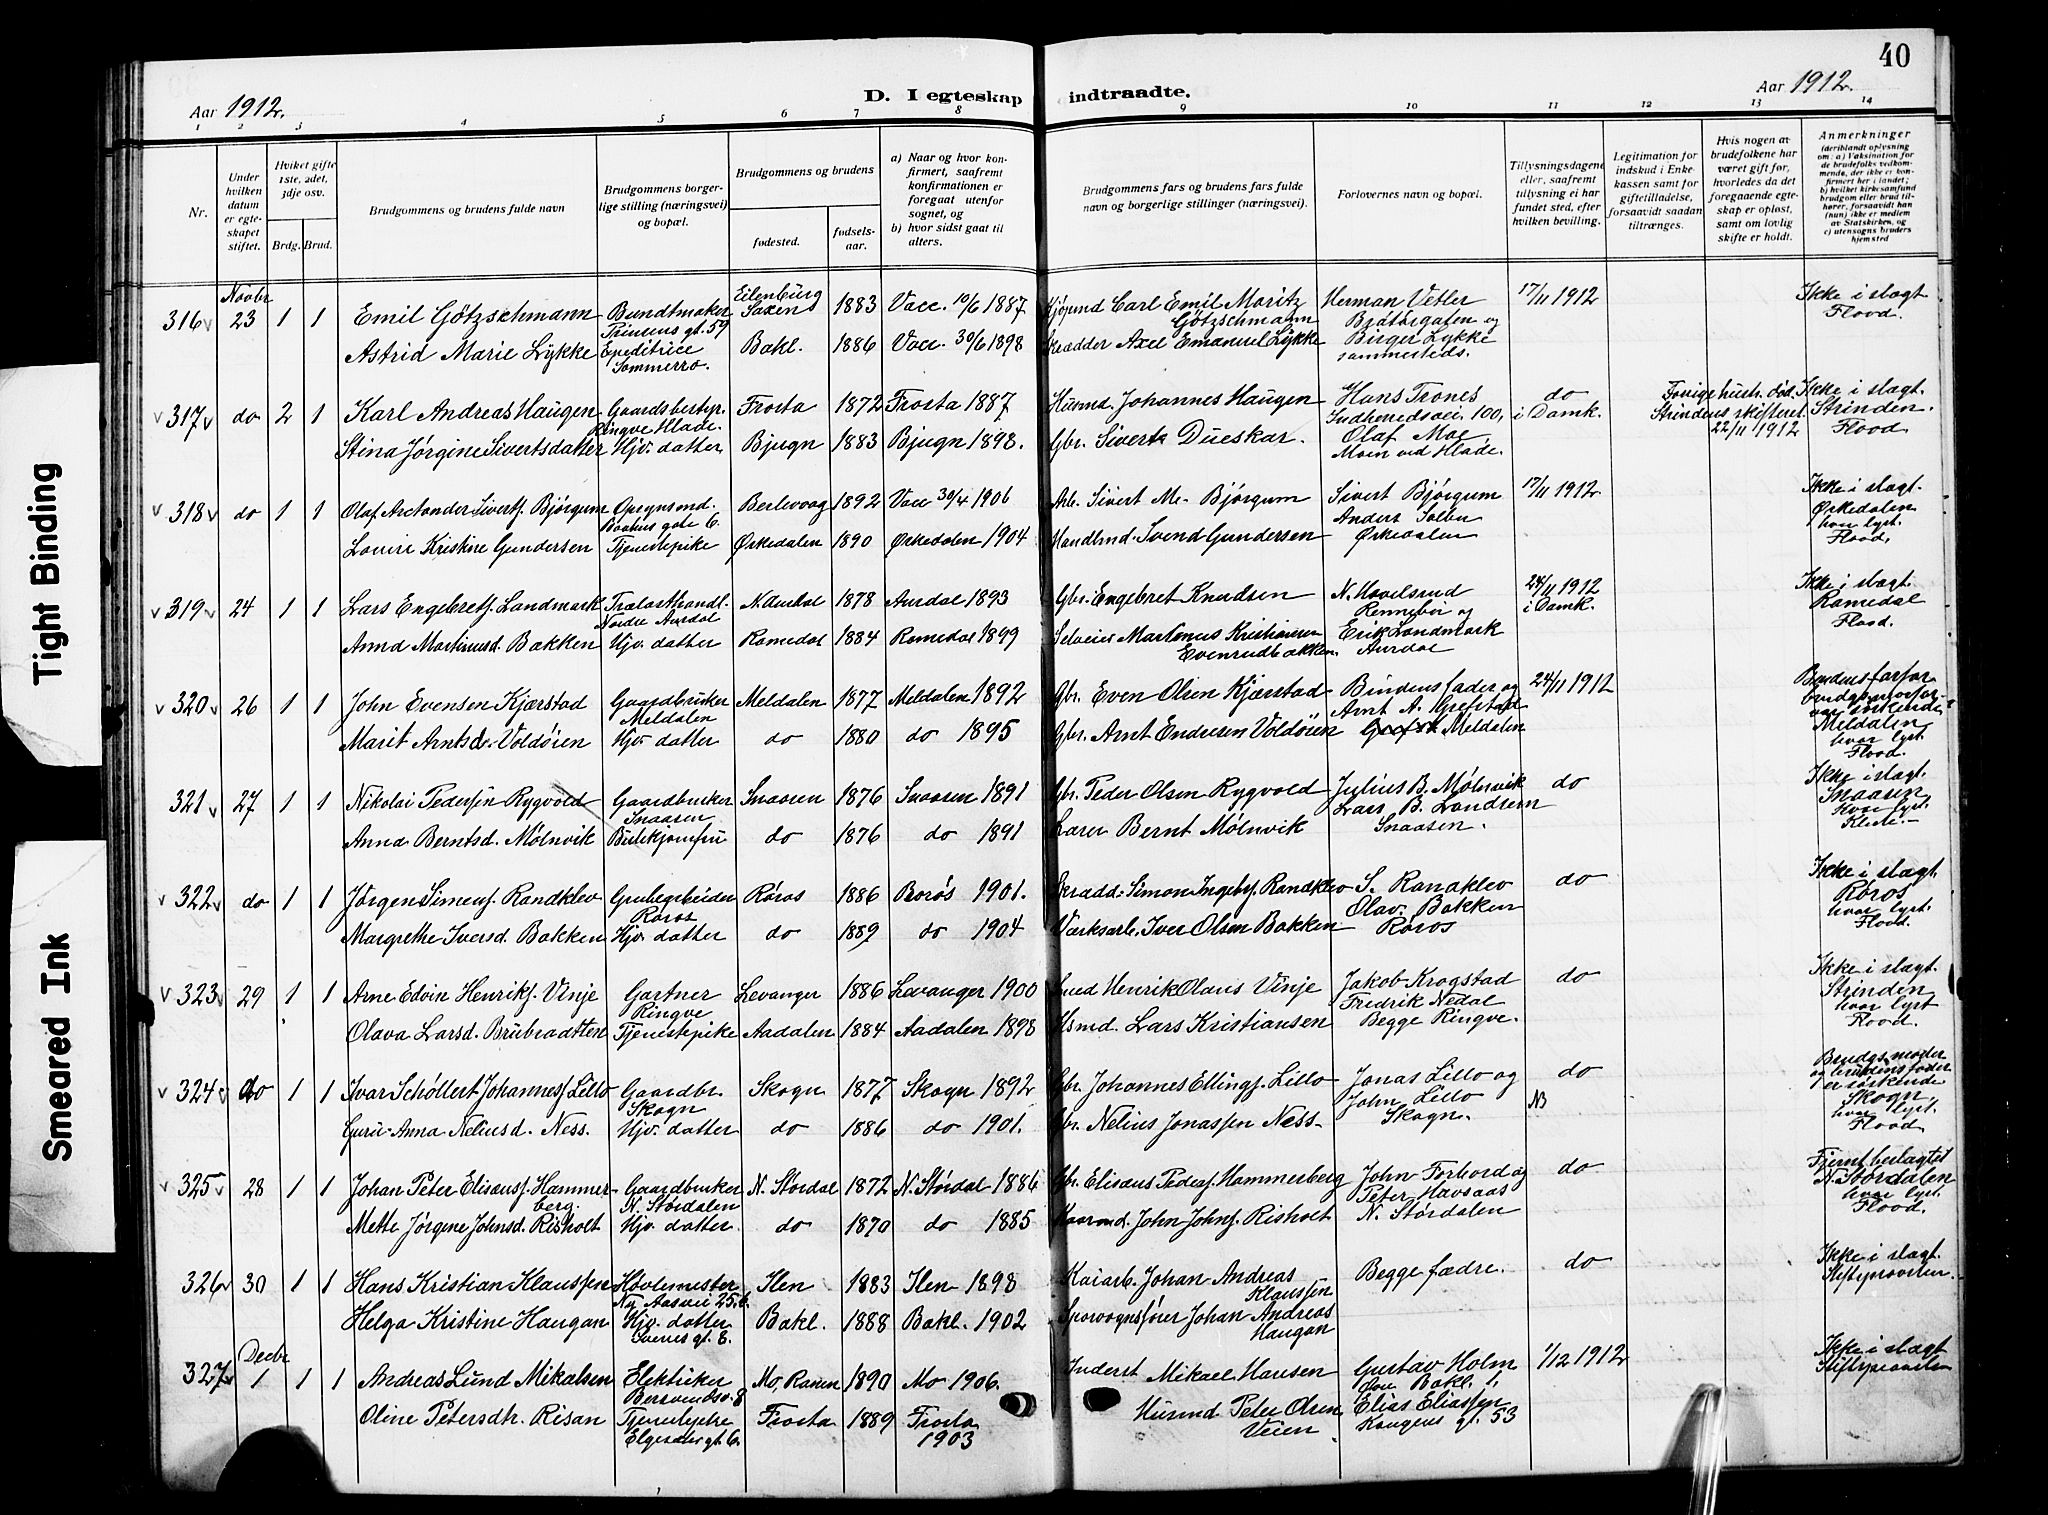 40
Aar 1912.
D. I egteskap indtraadte.
Aar 1912.
1 2 3 4 5 6 7 8 9 10 11 12 13 14
Nr.
Under hvilken datum er egteskapet stiftet.
Hvilket gifte 1ste, 2det, 3dje osv.
Brdg. Brud.
Brudgommens og brudens fulde navn
Brudgommens borgerlige stilling (næringsvei) og bopæl.
Brudgommens og brudens
fødested. fødselsaar.
a) Naar og hvor konfirmert, saafremt konfirmationen er foregaat utenfor sognet, og
b) hvor sidst gaat til alters.
Brudgommens fars og brudens fars fulde navn og borgerlige stillinger (næringsvei).
Forlovernes navn og bopæl.
Tillysningsdagene eller, saafremt tillysning ei har fundet sted, efter hvilken bevilling.
Legitimation for indskud i Enkekassen samt for giftetilladelse, forsaavidt saadan tiltrænges.
Hvis nogen av brudefolkene har været gift før, hvorledes da det foregaaende egteskap er opløst, samt om lovlig skifte er holdt.
Anmerkninger (deriblandt oplysning om: a) Vaksination for de brudefolks vedkommende, der ikke er konfirmert her i landet; b) hvilket kirkesamfund brudgom eller brud tilhører, forsaavidt han (hun) ikke er medlem av Statskirken, og c) utensogns bruders hjemsted
Novbr
316 23 1 1 Emil Götzschmann Bundtmaker Prinsens gt. 59 Eilenburg Saxen 1883 Vacc. 10/6 1887 Kjøpmd Carl Emil Moritz Götzschmann Herman Vetler 17/11 1912 Ikke i slægt Flood.
Astrid Marie Lykke Expeditrice Bakl. 1886 Vacc. 30/6 1898 Skrædder Axel Emanuel Lykke Birger Lykke sammesteds.
317 do 2 1 Karl Andreas Haugen Gaardsbestyr. Ringve Hlade. Frosta 1872 Frosta 1887 Husmd Johannes Haugen Hans Trones Indherredsvei. 100, do i Domk. Forrige hustr. død. Strindens skifteret 22/11 1912 Ikke i slægt Strinden. Flood
Stina Jørgine Sivertsdatter Hjv. datter Bjugn 1883 Bjugn 1898. Gbr. Sivert Dueskar. Olaf Moe Moen ved Hlade.
318 do 1 1 Olaf Arctander Sivertsf. Bjørgum Opsynsmd. Berlevaag 1892 Vacc 30/4 1906 Arb. Sivert M. Bjørgum Sivert Bjørgum 17/11 1912 Ikke i slægt. Ørkedalen hvor lyst. Flood.
Louise Kristine Gundersen Tjenestepike Ørkedalen 1890 Ørkedalen 1904 Handlmd. Svend Gundersen Anders Solbu Ørkedalen
319 24 1 1 Lars Engebretf. Landmark Trælasthandl. Nordre Aurdal N. Aurdal 1878 Aurdal 1893 Gbr. Engebret Knudsen N. Hovelsrud Rennebu og 24/11 1912 i Domk. Ikke i slægt. Romedal Flood.
Anna Martinusd. Bakken Hjv. datter Romedal 1884 Romedal 1899 Selveier Martinus Kristiansen Evenrudbakken. Erik Landmark Aurdal
320 26 1 1 John Evensen Kjærstad Gaardbruker Meldalen Meldalen 1877 Meldalen 1892 Gbr. Even Olsen Kjærstad Brudens fader og Arnt N. Grefstad 24/11 1912 Brudens farfar Meldalen hvor lyst. Flood.
Marit Arntsd. Voldøien Hjv. datter do 1880 do 1895 Gbr. Arnt Endresen Voldøien Meldalen
321 27 1 1 Nikolai Pedersen Rygvold Gaardbruker Snaasen Snaasen 1876 Snaasen 1891 Gbr. Peder Olsen Rygvold Julius B. Mølnvik do Ikke i slægt. Snaasen hvor lyst
Anna Berntsd. Mølnvik do 1876 do 1891 Lærer Bernt Mølnvik Lars B. Landsem Snaasen.
322 do 1 1 Jørgen Simensf. Randklev Grubearbeider Røros Røros 1886 Røros 1901. Skrædd. Simon Ingebr. Randklev S. Randklev do Ikke i slægt. Røros hvor lyst. Flood.
Margrethe Iversd. Bakken Hjv. datter do 1889 do 1904 Værksarb. Iver Olsen Bakken Olav Bakken Røros
323 29 1 1 Arne Edvin Henrikf. Vinje Gartner Ringve Levanger 1886 Levanger 1900 Smed Henrik Olaus Vinje Jakob Krogstad do Ikke i slægt. Strinden hvor lyst Flood.
Olava Larsd. Brubraatten Tjenestepike Aadalen 1884 Aadalen 1898 Hsmd. Lars Kristiansen Fredrik Nedal Begge Ringve.
324 do 1 1 Ivar Schøllert Johannesf. Lillo Gaardbr. Skogn Skogn 1877 Skogn 1892 Gbr. Johannes Ellingf. Lillo Jonas Lillo og do NB Brudgs moder og brudens fader er søskende Skogn, hvor lyst. Flood
Guru-Anna Neliusd. Ness. Hjv. datter do 1886 do 1901. Gbr. Nelius Jonassen Ness John Lillo Skogn.
325 28 1 1 Johan Peter Elisæusf. Hammerberg. Gaardbruker N. Stördalen N. Stördal 1872 N. Stördal 1886 Gbr. Elisæus Pedersf. Hammerberg John Forbord og do Fjernt beslægtet N. Stördalen hvor lyst. Flood.
Mette Jørgine Johnsd. Risholt Hjv. datter do 1870 do 1885 John Johnf. Risholt Peter Havsaas N. Stördalen
326 30 1 1 Hans Kristian Klaussen Høvlemester Ny Aasvei 25 b. Ilen 1883 Ilen 1898 Kaiarb. Johan Andreas Klaussen Begge fædre. do Ikke i slægt. Stiftsprovsten.
Helga Kristine Haugan Hjv. datter Sverres gt. 8. Bakl. 1888 Bakl. 1902 Sporvognsfører Johan Andreas Haugan
Decbr
327 1 1 1 Andreas Lund Mikalsen Elektriker Mo, Ranen 1890 Mo 1906. Inderst Mikael Hansen Gustav Holm Øvr Bakl. 1, 1/12 1912 Ikke i slægt Stiftsprovsten
Oline Petersdtr. Risan Tjenestepike Elgesæter gt. 6. Frosta 1889 Frosta 1903 Husmd Peter Olsen Veien Elias Eliassen Kongens gt. 53
Tight Binding
Smeared Ink